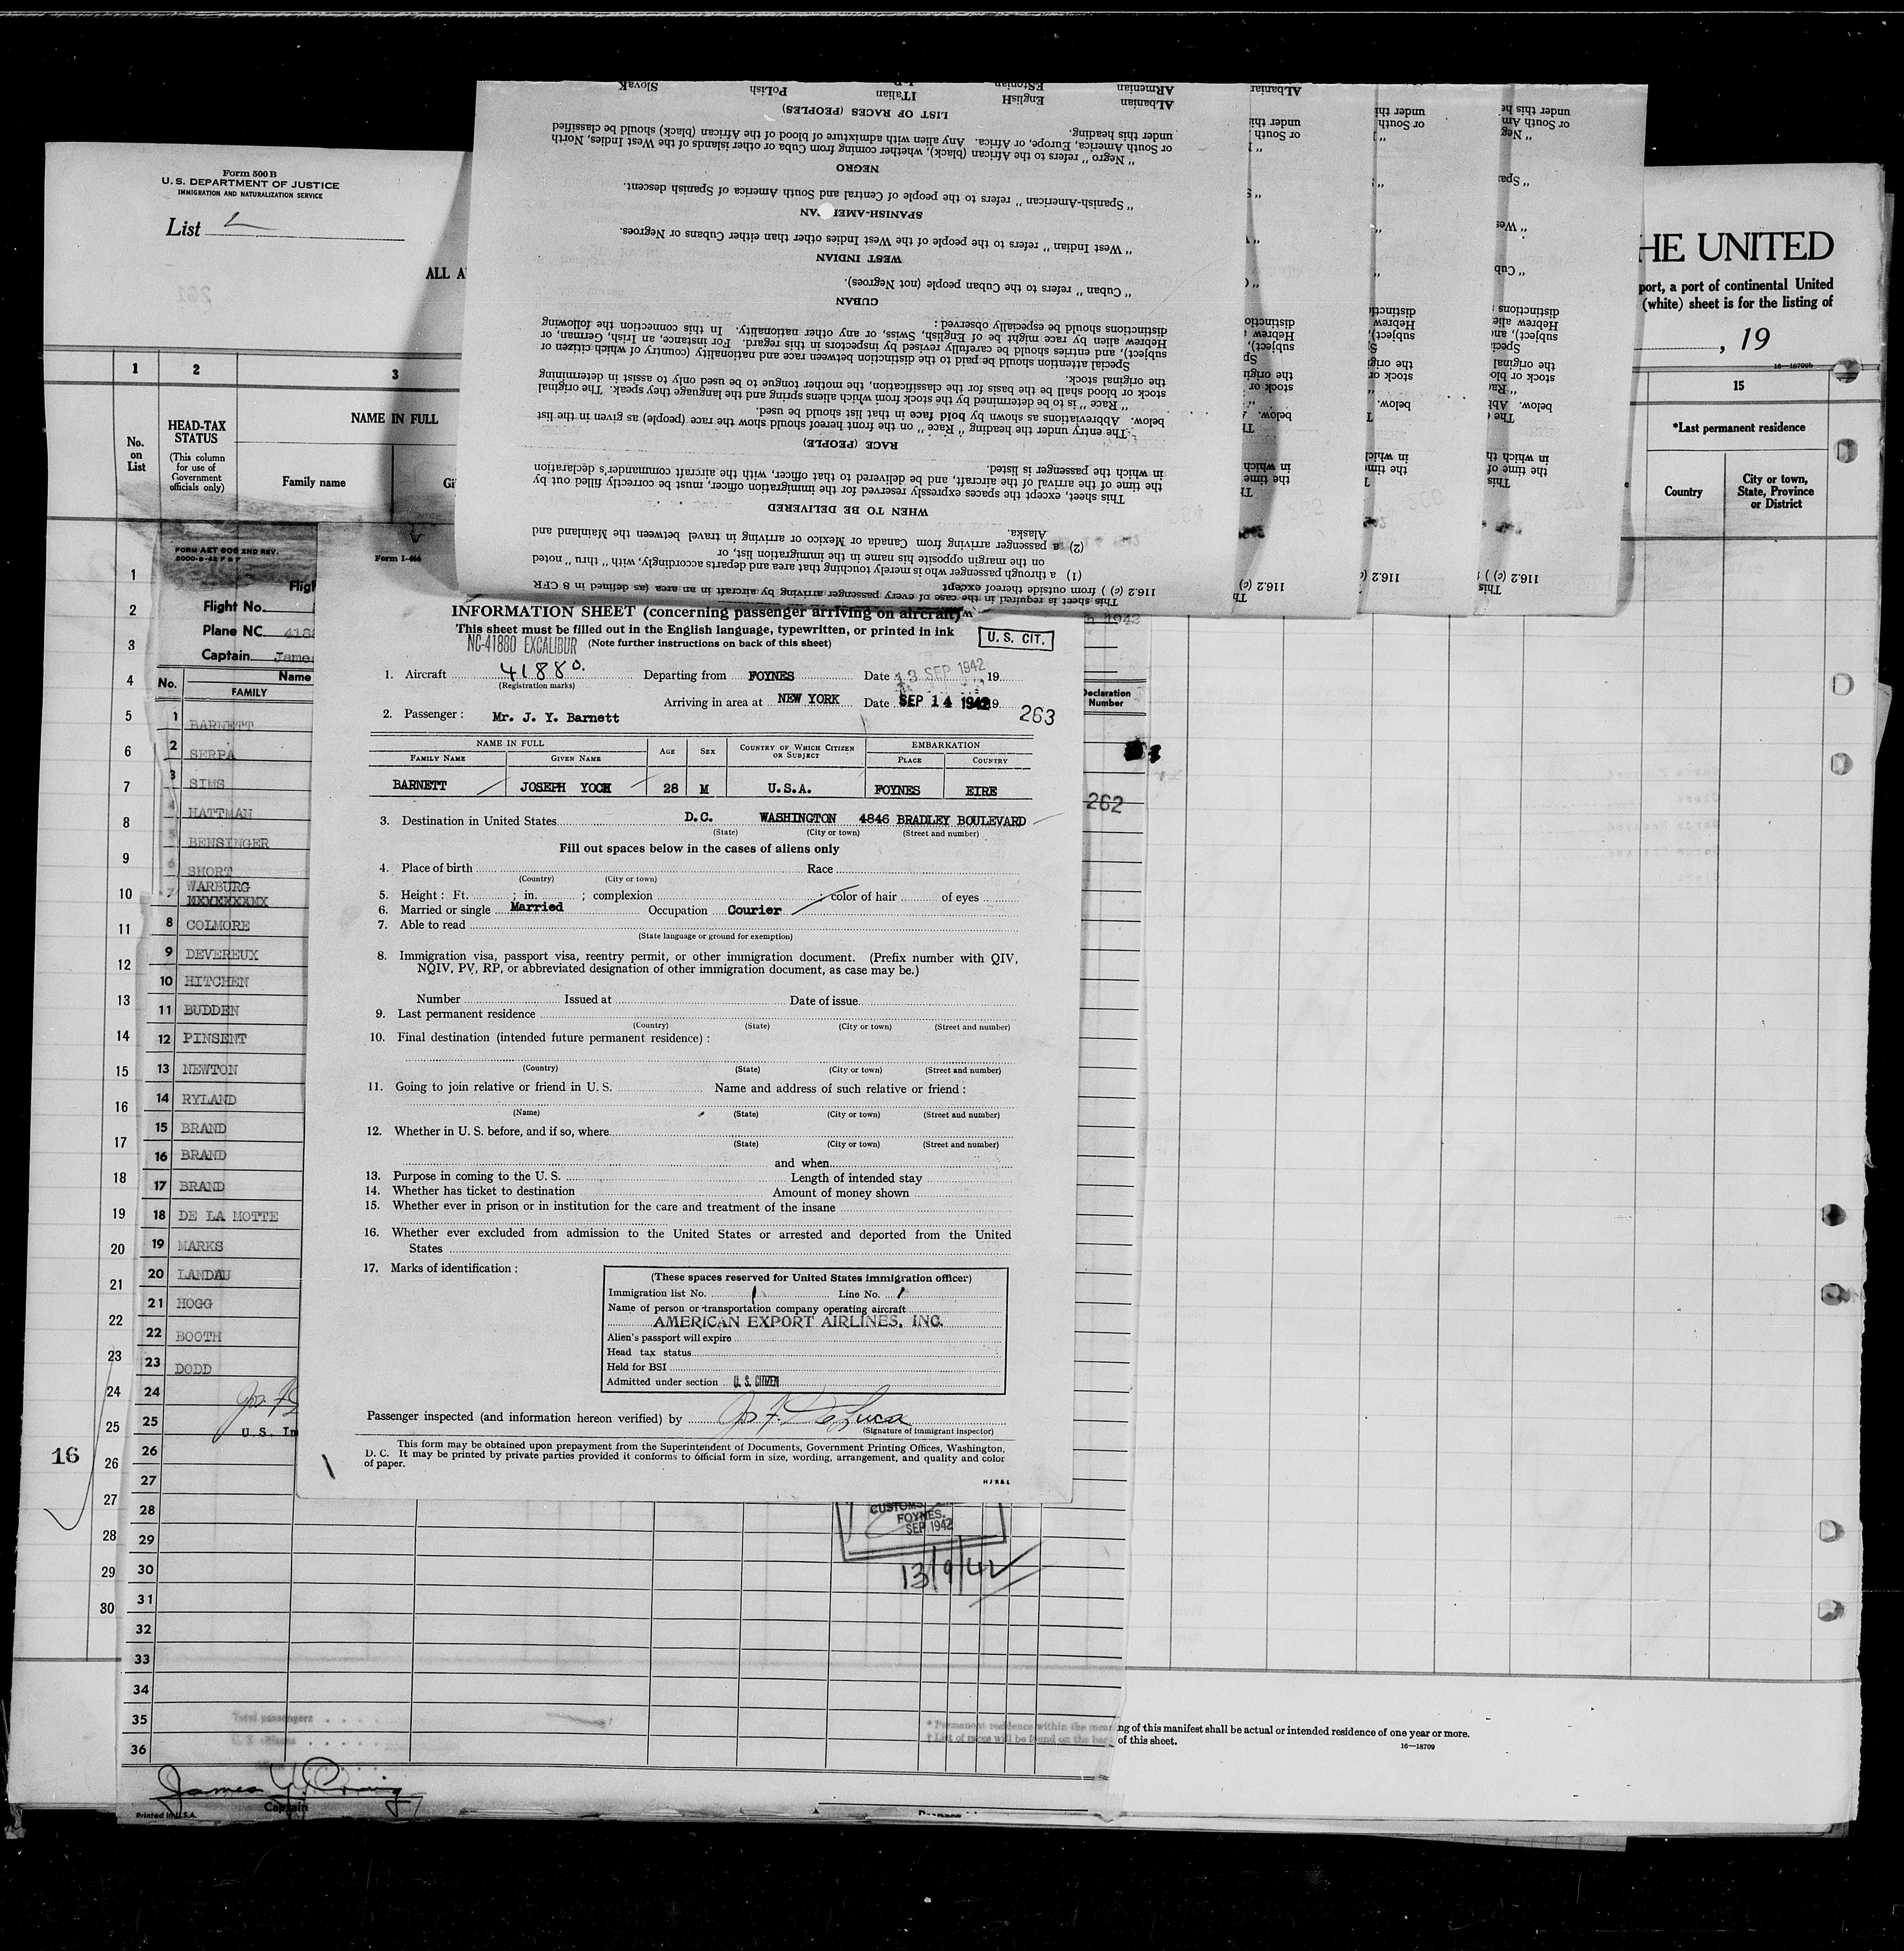 Form 500 B
U. S. DEPARTMENT OF JUSTICE
IMMIGRATION AND NATURALIZATION SERVICE
List
ALL A
HE UNITED
port, a port of continental United
(white) sheet is for the listing of
, 19
16—18709b
1
2
3
15
No.
on
List
HEAD-TAX
STATUS
(This column
for use of
Government
officials only)
NAME IN FULL
Family name
Gi
*Last permanent residence
Country
City or town,
State, Province
or District
1
2
3
4
5
6
7
8
9
10
11
12
13
14
15
16
17
18
19
20
21
22
23
24
25
26
27
28
29
30
16
This sheet is required in the case of every passenger arriving by aircraft in an area (as defined in 8 CFR
116.2 (c) ) from outside thereof except
(1) a through passenger who is merely touching that area and departs accordingly, with "thru" noted
on the margin opposite his name in the immigration list, or
(2) a passenger arriving from Canada or Mexico or arriving in travel between the Mainland and
Alaska.
WHEN TO BE DELIVERED
This sheet, except the spaces expressly reserved for the immigration officer, must be correctly filled out by
the time of the arrival of the aircraft, and be delivered to that officer, with the aircraft commander's declaration
in which the passenger is listed.
RACE (PEOPLE)
The entry under the heading "Race" on the front hereof should show the race (people) as given in the list
below. Abbreviations as shown by bold face in that list should be used.
"Race" is to be determined by the stock from which aliens spring and the language they speak. The original
stock or blood shall be the basis for the classification, the mother tongue to be used only to assist in determining
the original stock.
Special attention should be paid to the distinction between race and nationality (country of which citizen or
subject), and entries should be carefully revised by inspectors in this regard. For instance, an Irish, German, or
Hebrew alien by race might be of English, Swiss, or any other nationality. In this connection the following
distinctions should be especially observed:
CUBAN
"Cuban" refers to the Cuban people (not Negroes).
WEST INDIAN
"West Indian" refers to the people of the West Indies other than either Cubans or Negroes.
SPANISH-AMERICAN
"Spanish-American" refers to the people of Central and South America of Spanish descent.
NEGRO
"Negro" refers to the African (black), whether coming from Cuba or other islands of the West Indies, North
or South America, Europe, or Africa. Any alien with admixture of blood of the African (black) should be classified
under this heading.
LIST OF RACES (PEOPLES)
ALbanian EnglisH ITalian PoLish SlovaK
ARmenian EStonian
FORM AET 606 2ND REV.
Fligh
Flight No.
Plane NC. 4188
Captain James
No. Name
FAMILY
1 BARNETT
2 SERPA
3 SIMS
4 HATTMAN
5 BENSINGER
6 SHORT
7 WARBURG
8 COLMORE
9 DEVEREUX
10 HITCHEN
11 BUDDEN
12 PINSENT
13 NEWTON
14 RYLAND
15 BRAND
16 BRAND
17 BRAND
18 DE LA MOTTE
19 MARKS
20 LANDAU
21 HOGG
22 BOOTH
23 DODD
24
25
U.S. Im
26
27
28
29
30
31
32
33
34
35
36
Declaration
Number
262
CUSTOMS
FOYNES.
SEP 1942
13/9/42
Captain
Printed in U.S.A.
Form I-466
INFORMATION SHEET (concerning passenger arriving on aircraft)
This sheet must be filled out in the English language, typewritten, or printed in ink
NC-41880 EXCALIBUR (Note further instructions on back of this sheet)
U. S. CIT.
1. Aircraft 41880. Departing from FOYNES Date 13 SEP 1942, 19
(Registration marks)
Arriving in area at NEW YORK Date SEP 14 1942 19
263
2. Passenger: Mr. J. Y. Barnett
NAME IN FULL AGE SEX COUNTRY OF WHICH CITIZEN OR SUBJECT EMBARKATION
FAMILY NAME GIVEN NAME PLACE COUNTRY
BARNETT JOSEPH YOCK 28 M U.S.A. FOYNES EIRE
3. Destination in United States D.C. WASHINGTON 4846 BRADLEY BOULEVARD
(State) (City or town) (Street and number)
Fill out spaces below in the cases of aliens only
4. Place of birth Race
(Country) (City or town)
5. Height: Ft. ; in. ; complexion ; color of hair of eyes
6. Married or single Married Occupation Courier
7. Able to read
(State language or ground for exemption)
8. Immigration visa, passport visa, reentry permit, or other immigration document. (Prefix number with QIV,
NQIV, PV, RP, or abbreviated designation of other immigration document, as case may be.)
Number Issued at Date of issue
9. Last permanent residence
(Country) (State) (City or town) (Street and number)
10. Final destination (intended future permanent residence):
(Country) (State) (City or town) (Street and number)
11. Going to join relative or friend in U. S. Name and address of such relative or friend:
(Name) (State) (City or town) (Street and number)
12. Whether in U. S. before, and if so, where
(State) (City or town) (Street and number)
and when
13. Purpose in coming to the U. S. Length of intended stay
14. Whether has ticket to destination Amount of money shown
15. Whether ever in prison or in institution for the care and treatment of the insane
16. Whether ever excluded from admission to the United States or arrested and deported from the United
States
17. Marks of identification:
(These spaces reserved for United States immigration officer)
Immigration list No. 1 Line No. 1
Name of person or transportation company operating aircraft
AMERICAN EXPORT AIRLINES, INC.
Alien's passport will expire
Head tax status
Held for BSI
Admitted under section U. S. CITIZEN
Passenger inspected (and information hereon verified) by Jos. F. De Luca
(Signature of immigrant inspector)
This form may be obtained upon prepayment from the Superintendent of Documents, Government Printing Offices, Washington,
D. C. It may be printed by private parties provided it conforms to official form in size, wording, arrangement, and quality and color
of paper.
ng of this manifest shall be actual or intended residence of one year or more.
of this sheet.
16—18709